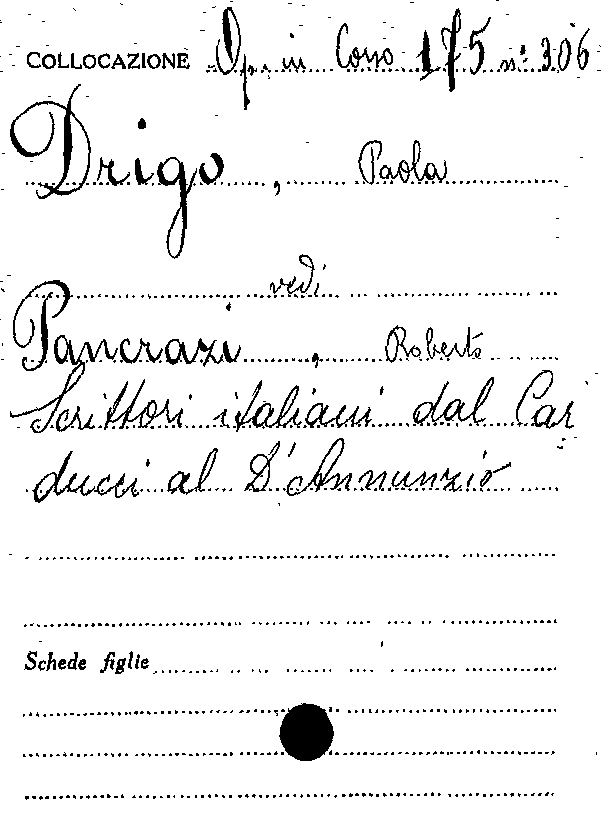 COLLOCAZIONE Op. in Corso 175 n: 306
Drigo, Paola
vedi
Pancrazi, Roberto
Scrittori italiani dal Car
ducci al D'Annunzio
Schede figlie